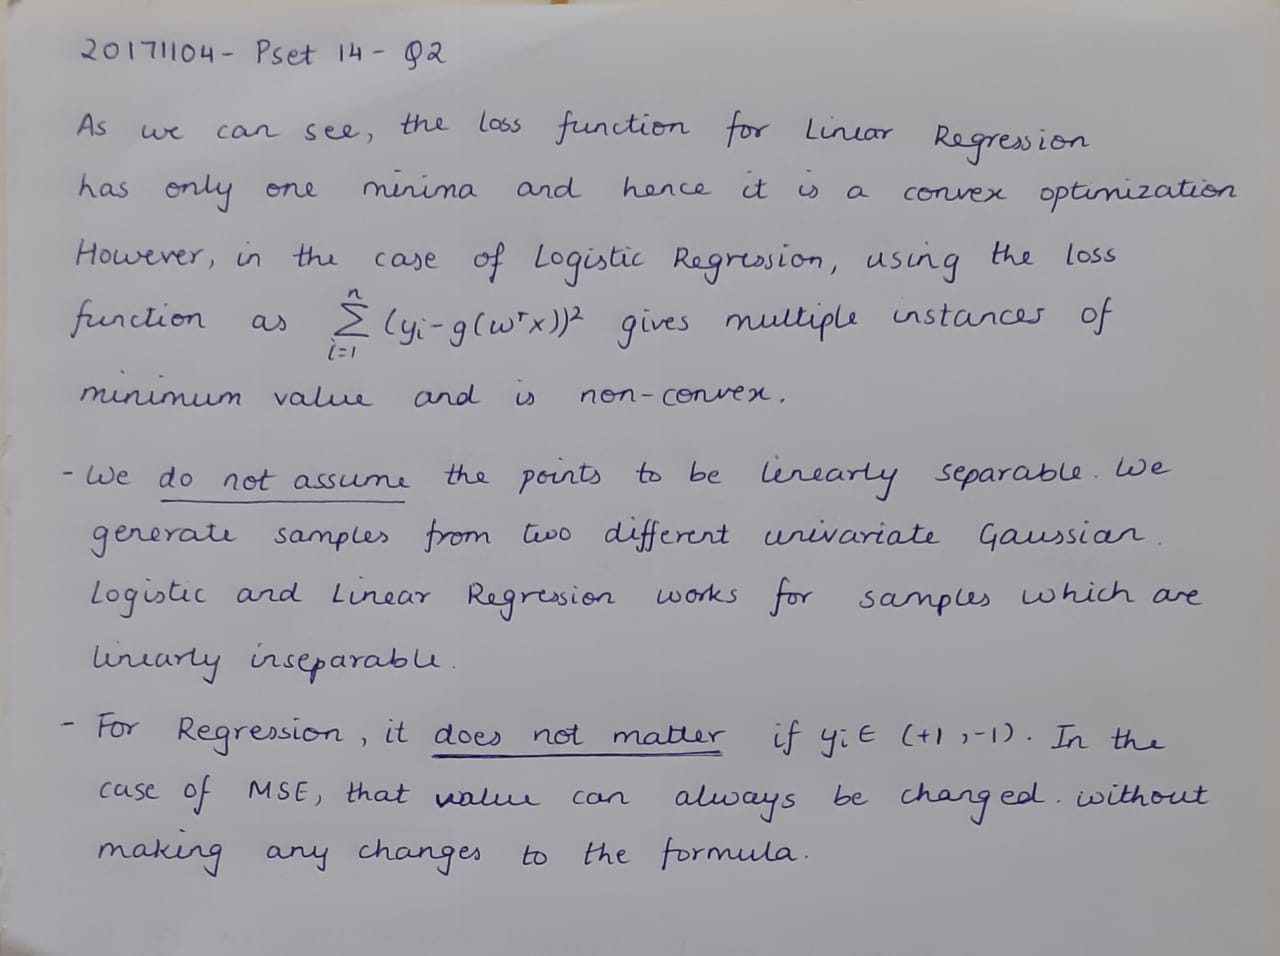 20171104 - Pset 14 - Q2
As we can see, the loss function for Linear Regression
has only one minima and hence it is a convex optimization
However, in the case of Logistic Regression, using the loss
function as $\sum_{i=1}^{n} (y_i - g(w^T x))^2$ gives multiple instances of
minimum value and is non-convex.
- We do not assume the points to be linearly separable. We
generate samples from two different univariate Gaussian.
Logistic and Linear Regression works for samples which are
linearly inseparable.
- For Regression, it does not matter if $y_i \in (+1, -1)$. In the
case of MSE, that value can always be changed. without
making any changes to the formula.